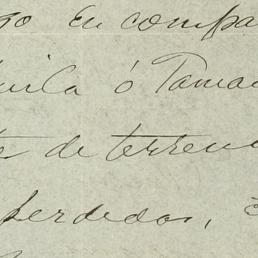 en compa
uila ó Tamau
te de terreno
perdedor,